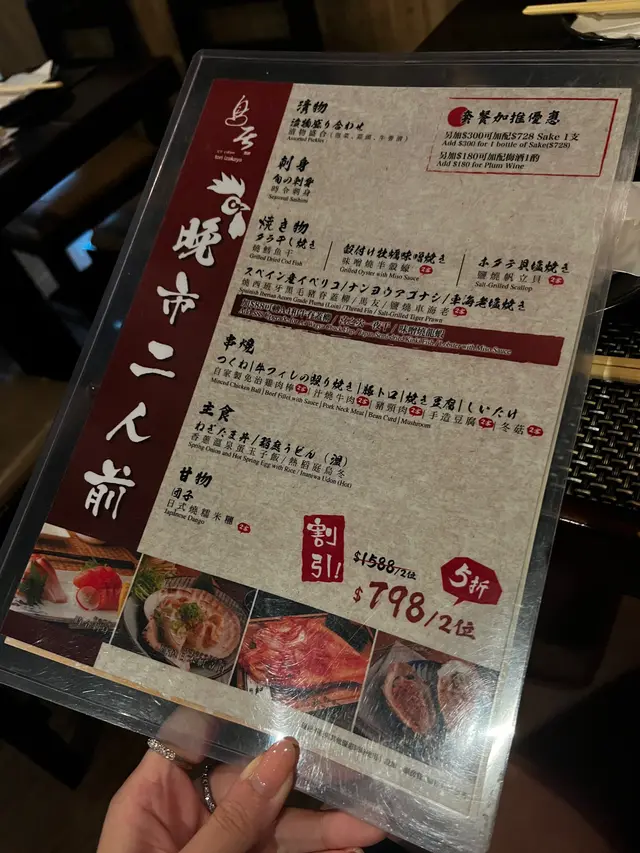 晚市二人前
套餐加推優惠
另加$300可加配$728 Sake 1支
Add $300 for 1 bottle of Sake($728)
另加$180可加配梅酒1酌
Add $180 for Plum Wine
漬物
漬物盛り合わせ
Assorted Pickles
刺身
旬の刺身
時令刺身
Seasonal Sashimi
焼き物
Grilled Dried Cod Fish
殻付け牡蠣味噌焼き
味噌燒半殼蠔 2本
Grilled Oyster with Miso Sauce
ホタテ貝塩焼き
鹽燒帆立貝 2本
Salt-Grilled Scallop
スペイン産イベリコ/ナンヨウアゴナシ/車海老塩焼き
燒西班牙黑毛豬脊蓋柳/馬友/鹽燒車海老 2本
串燒
つくね|牛フィレの照り焼き|豚トロ|焼き豆腐|しいたけ
自家製免治雞肉棒 2本|汁燒牛肉 2本|豬頸肉 2本|手造豆腐 2本|冬菇 2本
Minced Chicken Ball | Beef Fillet with Sauce | Pork Neck Meat | Bean Curd | Mushroom
主食
ねぎたま丼/稲庭うどん(温)
香蔥溫泉蛋玉子飯/熱稻庭烏冬
Spring Onion and Hot Spring Egg with Rice / Inaniwa Udon (Hot)
甘物
団子
日式燒糯米糰 2本
Japanese Dango
割引!
$1588/2位
$798/2位
5折